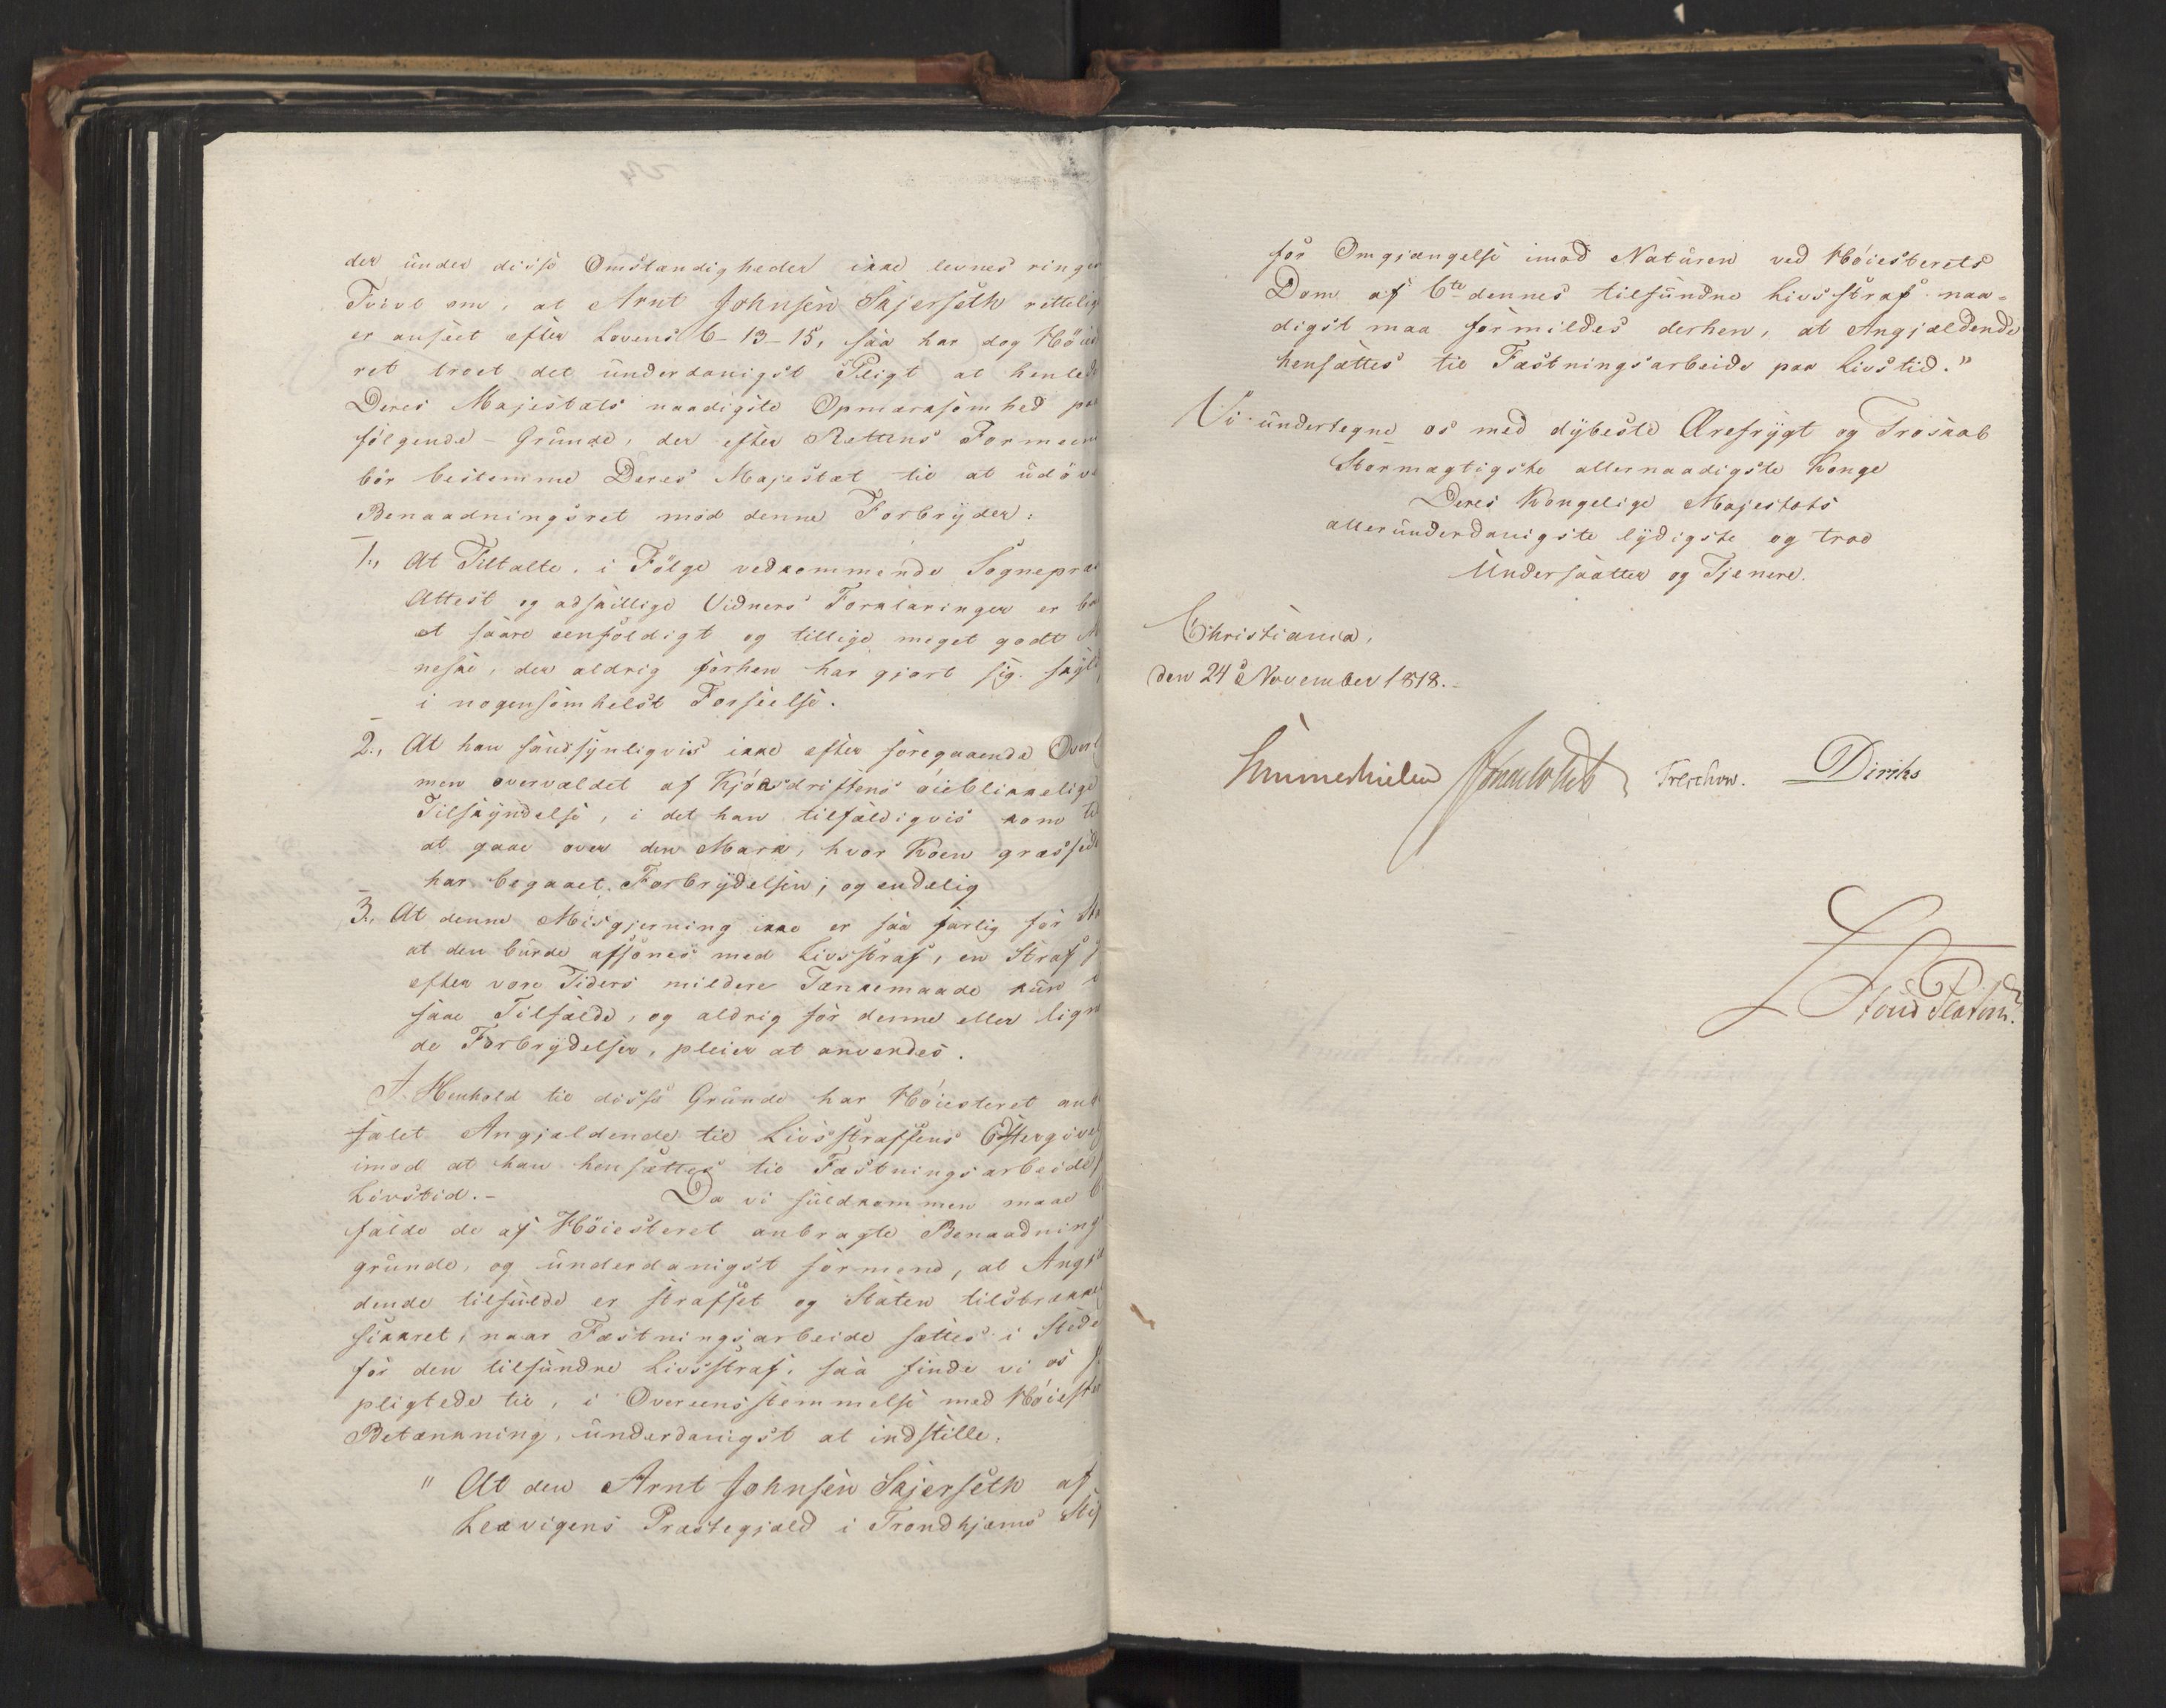 der under disse Omstændigheder ikke levnes ringe
Tvivl om, at Arnt Johnsen Skjerseth rettelig
er anseet efter Lovens 6-13-15, saa har dog Höies
ret troet det underdanigst Pligt at henlede
Deres Majestæts naadigste Opmærksomhed paa
fölgende Grunde, der efter Rettens Formeen
bör bestemme Deres Majestæt til at udöve
Benaadningsret mod denne Forbryder:
1., At Tiltalte, i Fölge vedkommende Sognepræ
Attest og adskillige Vidners Forklaringer er
et saare eenfoldigt og tillige meget godt M
neske, der aldrig forhen har gjort sig skyld
i nogensomhelst Forseelse.
2., At han sandsynligviis ikke efter foregaaende Overl
men overvældet af Kjönsdriftens öieblikkelige
Tilskyndelse, i det han tilfældigvis kom til
at gaae over den Mark, hvor Koen græssede
har begaaet Forbrydelsen; og endelig
3., At denne Misgjerning ikke er saa farlig for St
at den burde afsones med Livsstraf, en Straf
efter vore Tiders mildere Tænkemaade kun i
faae Tilfælde, og aldrig for denne eller lign
de Forbrydelser, pleier at anvendes.
I Henhold til disse Grunde har Höiesteret anb
falet Angjældende til Livsstraffens Eftergivel
imod at han hensættes til Fæstningsarbeide
Livstid.- Da vi fuldkommen maae b
falde de af Höiesteret anbragte Benaadnings
grunde, og underdanigst formene, at Angjæ
dende tilfulde er straffet og Staten tilstrækkel
sikkret, naar Fæstningsarbeide sættes i Stede
for den tilfundne Livsstraf, saa finde vi os f
pligtede til, i Overeensstemmelse med Höieste
Betænkning, underdanigst at indstille:
" At den Arnt Johnsen Skjerseth af
Lexvigens Præstegjæld i Trondhjems Stif
for Omgjængelse imod Naturen ved Höiesterets
Dom af 6te dennes tilfundne Livsstraf naa-
digst maa formildes derhen, at Angjældende
hensættes til Fæstningsarbeide paa Livstid."
Vi undertegne os med dybeste Ærefrygt og Troskab
Stormægtigste allernaadigste Konge
Deres Kongelige Majestæts
allerunderdanigste lydigste og troe
Undersaatter og Tjenere.
Christiania,
den 24de November 1818.-
Sommerhielm Treschow. Diriks